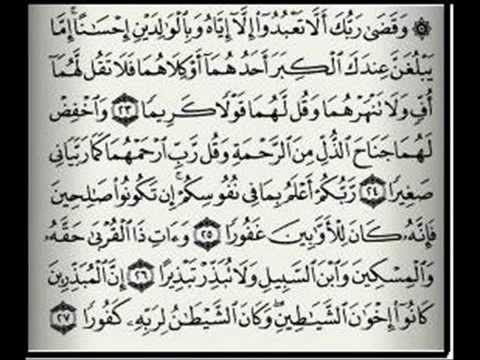 ۞ وَقَضَىٰ رَبُّكَ أَلَّا تَعْبُدُوٓا۟ إِلَّآ إِيَّاهُ وَبِٱلْوَٰلِدَيْنِ إِحْسَٰنًا ۚ إِمَّا
يَبْلُغَنَّ عِندَكَ ٱلْكِبَرَ أَحَدُهُمَآ أَوْ كِلَاهُمَا فَلَا تَقُل لَّهُمَآ
أُفٍّ وَلَا تَنْهَرْهُمَا وَقُل لَّهُمَا قَوْلًا كَرِيمًا ٢٣ وَٱخْفِضْ
لَهُمَا جَنَاحَ ٱلذُّلِّ مِنَ ٱلرَّحْمَةِ وَقُل رَّبِّ ٱرْحَمْهُمَا كَمَا رَبَّيَانِى
صَغِيرًا ٢٤ رَّبُّكُمْ أَعْلَمُ بِمَا فِى نُفُوسِكُمْ ۚ إِن تَكُونُوا۟ صَٰلِحِينَ
فَإِنَّهُۥ كَانَ لِلْأَوَّٰبِينَ غَفُورًا ٢٥ وَءَاتِ ذَا ٱلْقُرْبَىٰ حَقَّهُۥ
وَٱلْمِسْكِينَ وَٱبْنَ ٱلسَّبِيلِ وَلَا تُبَذِّرْ تَبْذِيرًا ٢٦ إِنَّ ٱلْمُبَذِّرِينَ
كَانُوٓا۟ إِخْوَٰنَ ٱلشَّيَٰطِينِ ۖ وَكَانَ ٱلشَّيْطَٰنُ لِرَبِّهِۦ كَفُورًا ٢٧